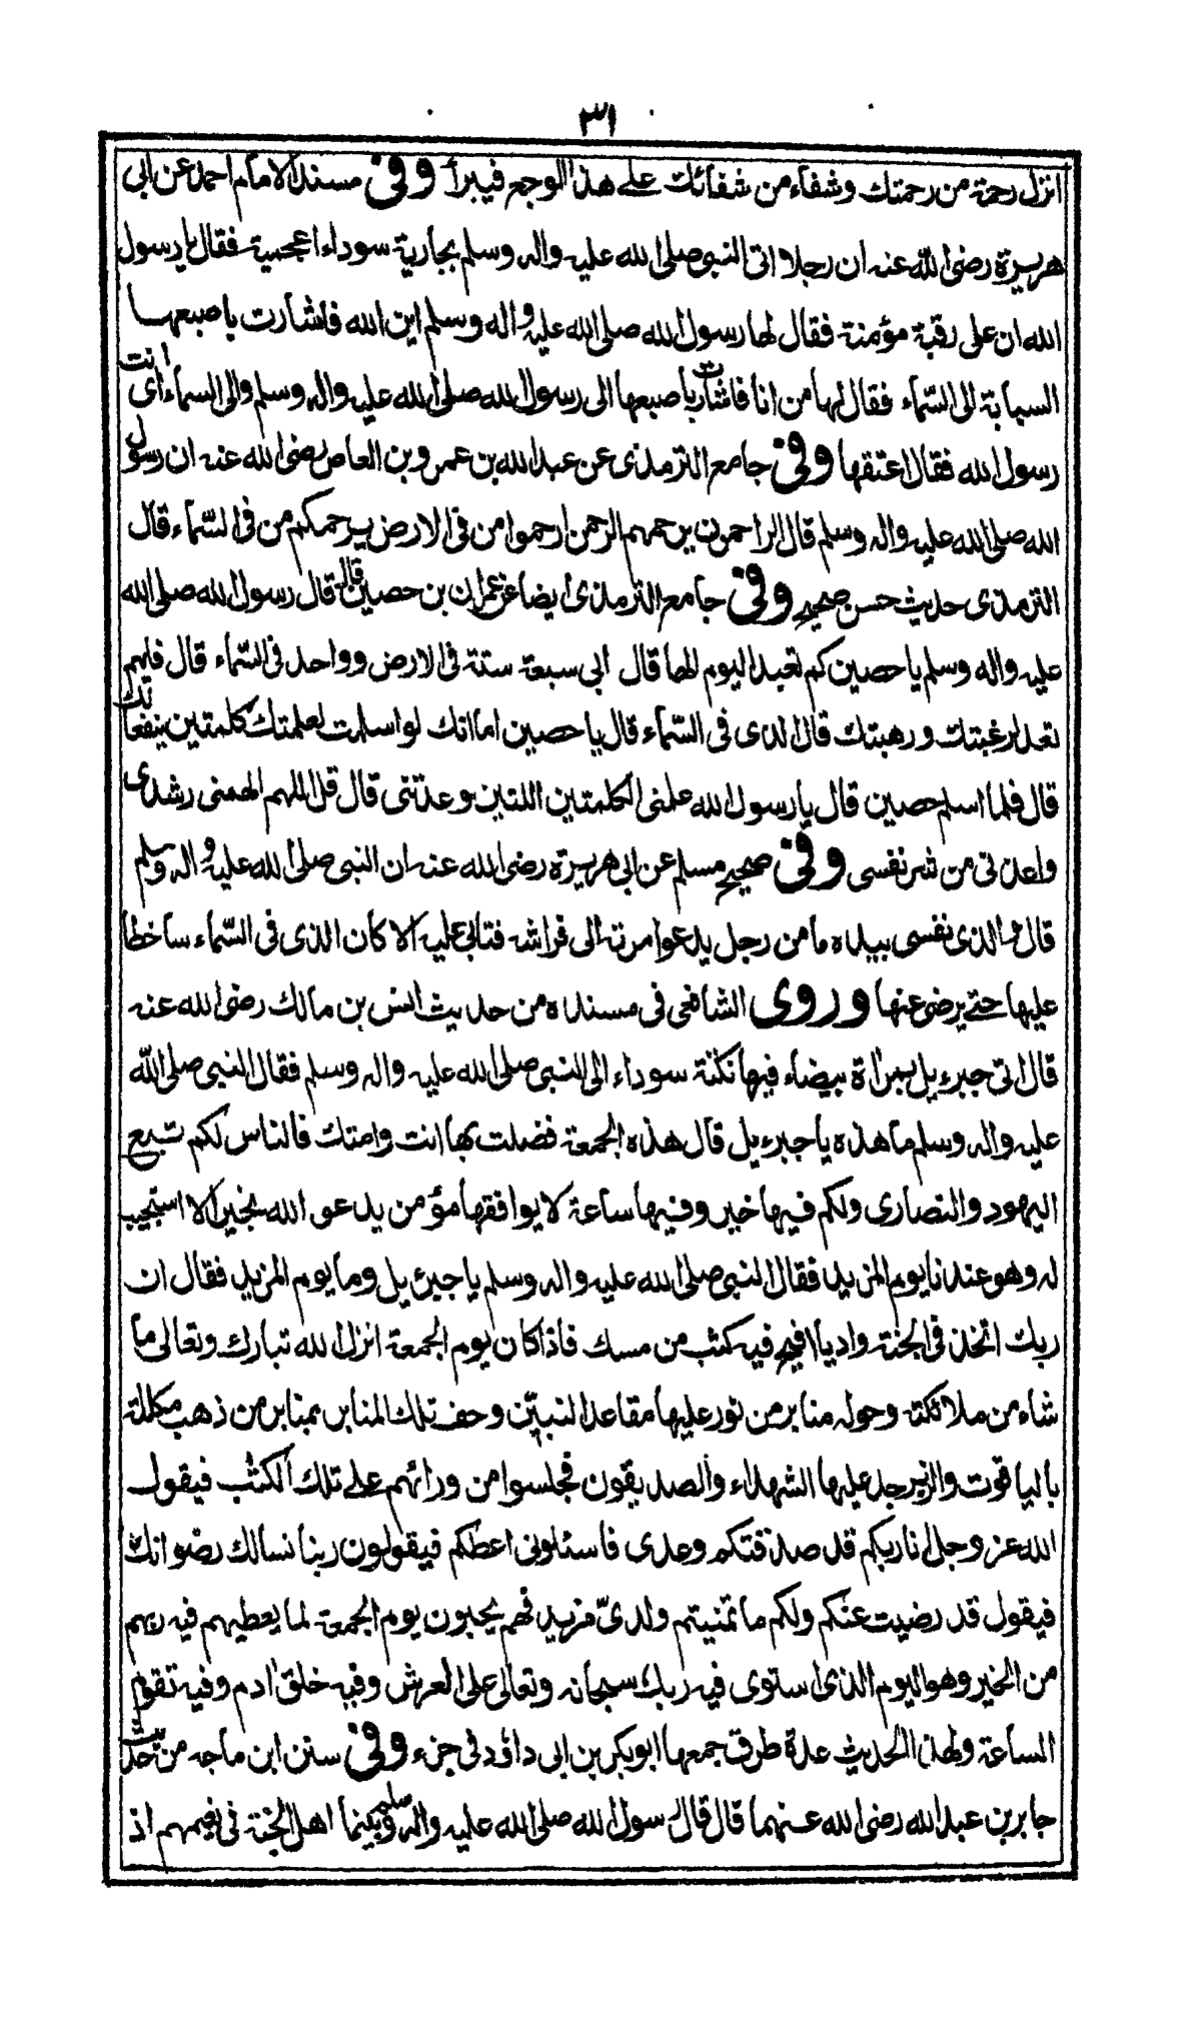 ٣١
انزل رحمة من رحمتك وشفاء من شفائك على هذا الوجع فيبرأ وفي مسند الامام احمد عن ابي
هريرة رضى الله عنه ان رجلا اتى النبى صلى الله عليه واله وسلم بجارية سوداء اعجمية فقال يا رسول
الله ان على رقبة مؤمنة فقال لها رسول الله صلى الله عليه واله وسلم اين الله فاشارت باصبعها
السبابة الى السّماء فقال لها من انا فاشارت باصبعها الى رسول الله صلى الله عليه واله وسلم والى السماء اى انت
رسول الله فقال اعتقها وفي جامع الترمذى عن عبد الله بن عمرو بن العاص رضى الله عنه ان رسول
الله صلى الله عليه واله وسلم قال الراحمون يرحمهم الرحمن ارحموا من فى الارض يرحمكم من فى السّماء قال
الترمذى حديث حسن صحيح وفي جامع الترمذى ايضا عن عمران بن حصين قال قال رسول الله صلى الله
عليه واله وسلم يا حصين كم تعبد اليوم الها قال ابى سبعة ستة فى الارض وواحد فى السّماء قال فايهم
تعد لرغبتك ورهبتك قال الذى فى السّماء قال يا حصين اما انك لو اسلمت لعلمتك كلمتين ينفعانك
قال فلما اسلم حصين قال يا رسول الله علمنى الكلمتين اللتين وعدتنى قال قل اللهم الهمنى رشدى
واعذنى من شر نفسى وفي صحيح مسلم عن ابى هريرة رضى الله عنه ان النبى صلى الله عليه واله وسلم
قال والذى نفسى بيده ما من رجل يدعوا مرته الى فراشه فتابى عليه الا كان الذى فى السّماء ساخطا
عليها حتى يرضى عنها وروى الشافعى فى مسنده من حديث انس بن مالك رضى الله عنه
قال اتى جبرءيل بمراة بيضاء فيها نكتة سوداء الى النبى صلى الله عليه واله وسلم فقال النبى صلى الله
عليه واله وسلم ما هذه يا جبرءيل قال هذه الجمعة فضلت بها انت وامتك فالناس لكم تبع
اليهود والنصارى ولكم فيها خير وفيها ساعة لا يوافقها مؤمن يدعو الله بخير الا استجيب
له وهو عندنا يوم المزيد فقال النبى صلى الله عليه واله وسلم يا جبرئيل وما يوم المزيد فقال ان
ربك اتخذ فى الجنة واديا افيح فيه كثب من مسك فاذا كان يوم الجمعة انزل الله تبارك وتعالى ما
شاء من ملائكته وحوله منابر من نور عليها مقاعد النبيّن وحف تلك المنابر بمنابر من ذهب مكللة
بالياقوت والزبرجد عليها الشهداء والصديقون فجلسوا من ورائهم على تلك الكثب فيقول
الله عز وجل انا ربكم قد صدقتكم وعدى فاسئلونى اعطكم فيقولون ربنا نسالك رضوانك
فيقول قد رضيت عنكم ولكم ما تمنيتم ولدىّ مزيد فهم يحبون يوم الجمعة لما يعطيهم فيه ربهم
من الخير وهو اليوم الذى استوى فيه ربك سبحانه وتعالى على العرش وفيه خلق ادم وفيه تقوم
الساعة ولهذا الحديث عدة طرق جمعها ابو بكر بن ابى داؤد فى جزء وفي سنن ابن ماجه من حديث
جابر بن عبد الله رضى الله عنهما قال قال رسول الله صلى الله عليه واله وسلم بينما اهل الجنة فى نعيمهم اذ